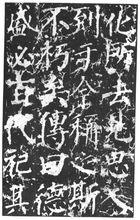 化所去見思人
到于今稱之斯
不朽矣傳曰德
盛必百代祀其